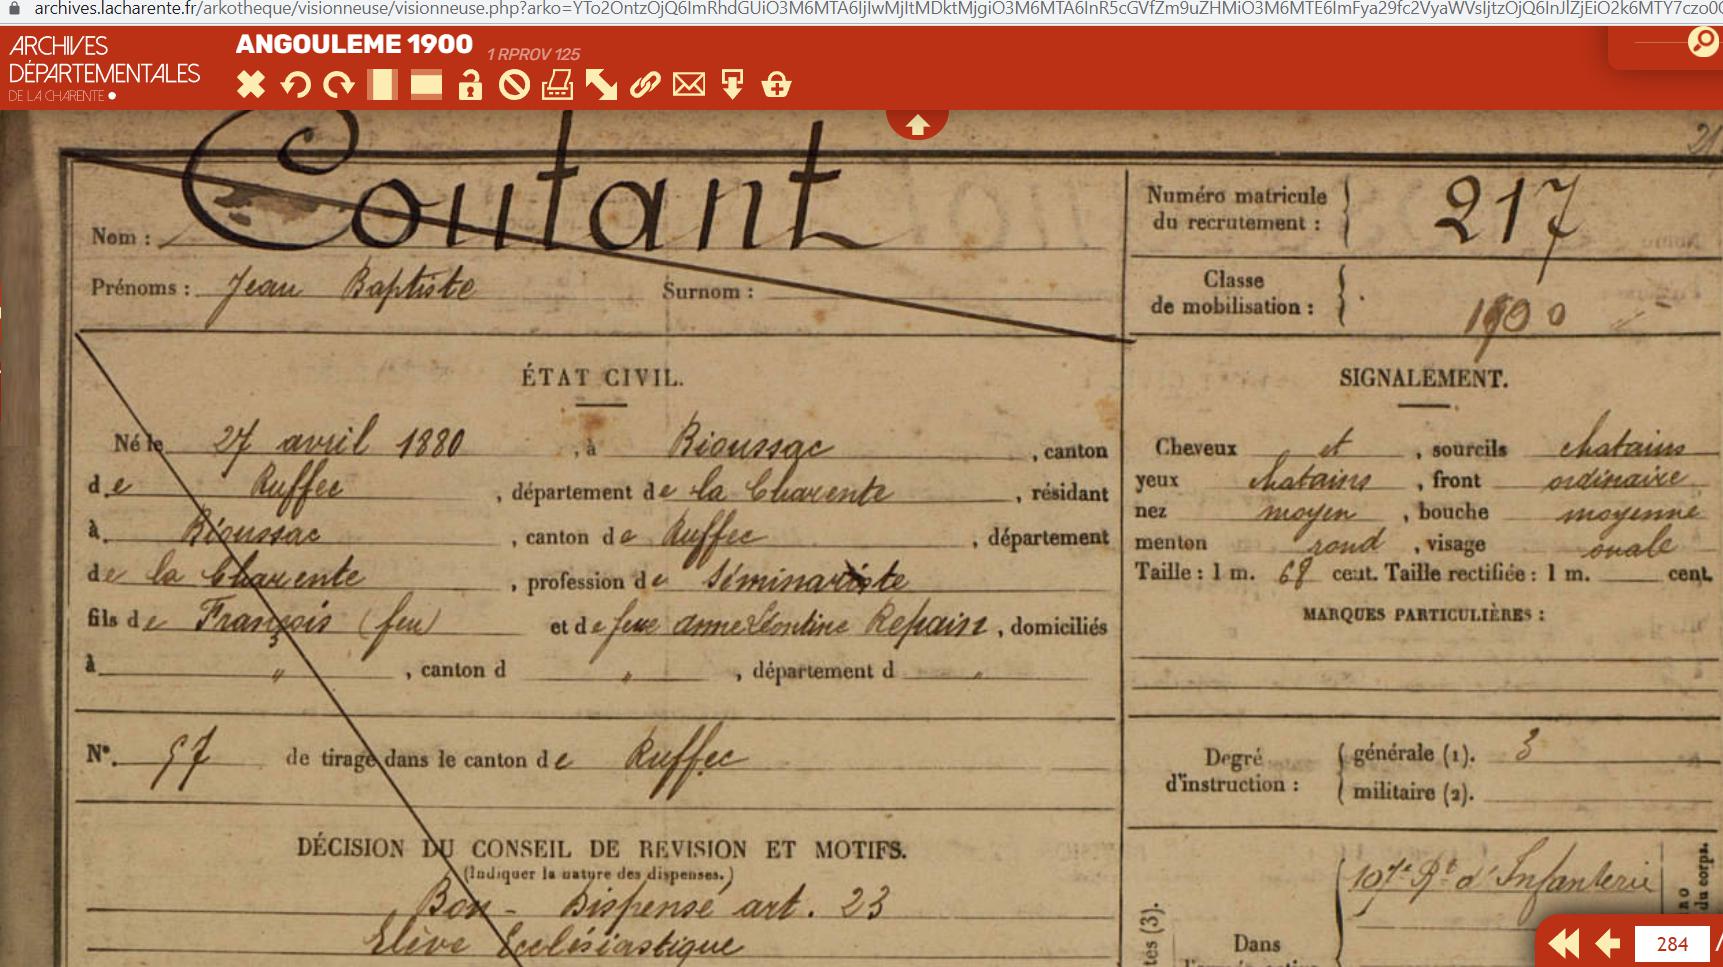 archives.lacharente.fr/arkotheque/visionneuse/visionneuse.php?arko=
ARCHIVES
DÉPARTEMENTALES
DE LA CHARENTE
ANGOULEME 1900
1 RPROV 125
Nom : Coutant
Prénoms : Jean Baptiste Surnom :
Numéro matricule
du recrutement : 217
Classe
de mobilisation : 1900
ÉTAT CIVIL.
Né le 27 avril 1880, à Bioussac, canton
de Ruffec, département de la Charente, résidant
à Bioussac, canton de Ruffec, département
de la Charente, profession de Séminariste
fils de François (feu) et de feue anne Léontine Repain, domiciliés
à " , canton d " , département d "
N°. 57 de tirage dans le canton de Ruffec
DÉCISION DU CONSEIL DE REVISION ET MOTIFS.
(Indiquer la nature des dispenses.)
Bon - Dispensé art. 23
Elève Ecclésiastique
SIGNALEMENT.
Cheveux et, sourcils chatains
yeux chatains, front ordinaire
nez moyen, bouche moyenne
menton rond, visage ovale
Taille : 1 m. 68 cent. Taille rectifiée : 1 m. cent.
MARQUES PARTICULIÈRES :
Degré
d'instruction :
générale (1). 3
militaire (2).
107e Rt d'Infanterie
Dans
du corps.
284